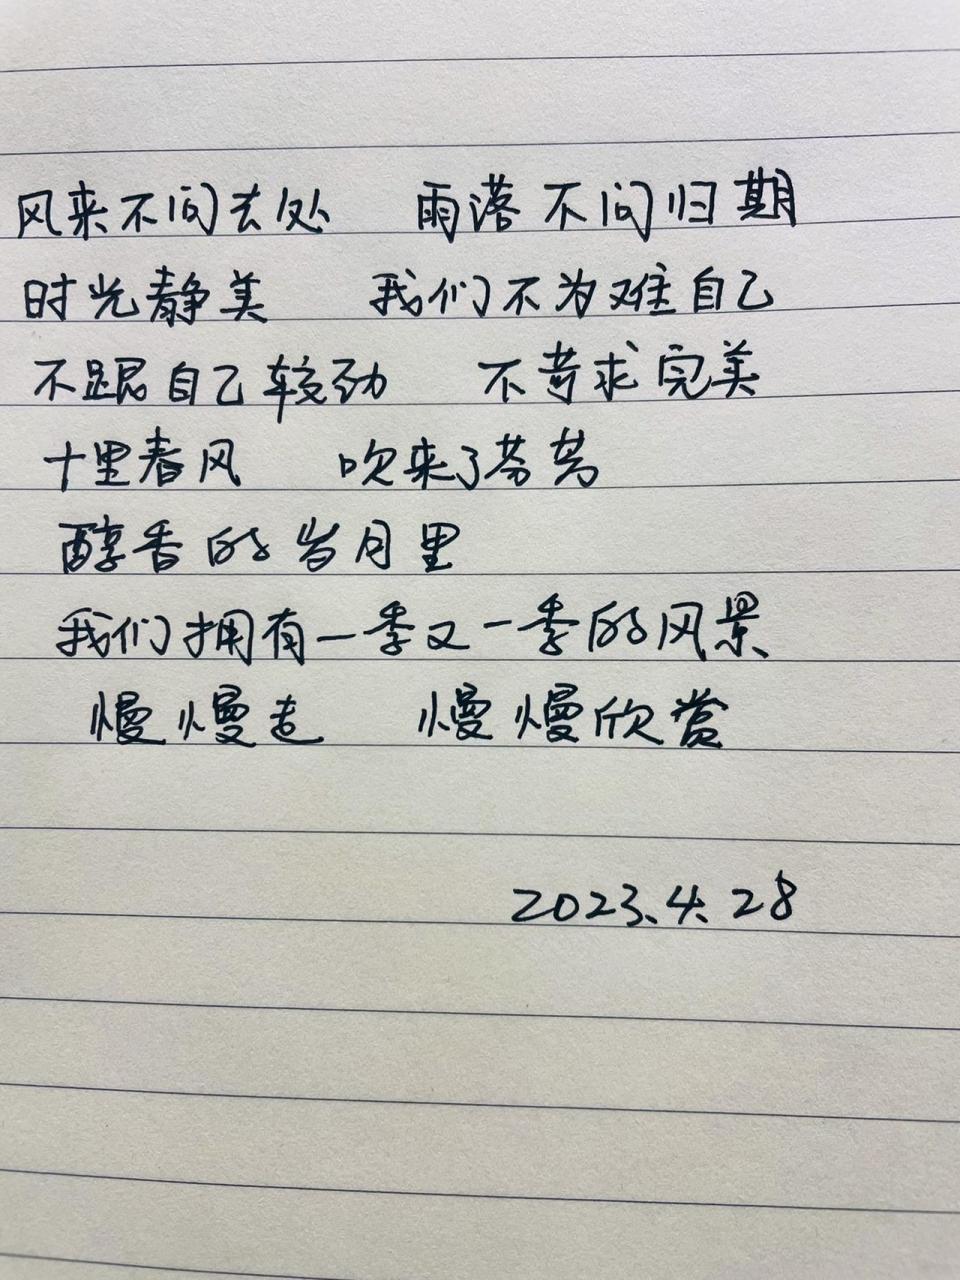 风来不问去处 雨落不问归期
时光静美 我们不为难自己
不跟自己较劲 不苛求完美
十里春风 吹来了芬芳
醇香的岁月里
我们拥有一季又一季的风景
慢慢走 慢慢欣赏
2023.4.28